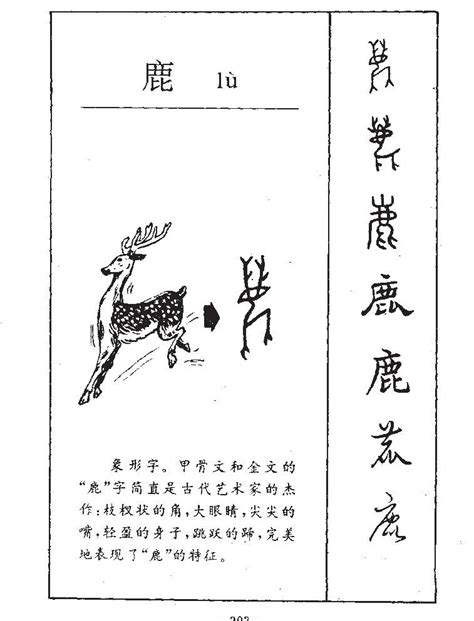 鹿 lù
象形字。甲骨文和金文的
“鹿”字简直是古代艺术家的杰
作:枝杈状的角,大眼睛,尖尖的
嘴,轻盈的身子,跳跃的蹄,完美
地表现了“鹿”的特征。
鹿
鹿
鹿
鹿